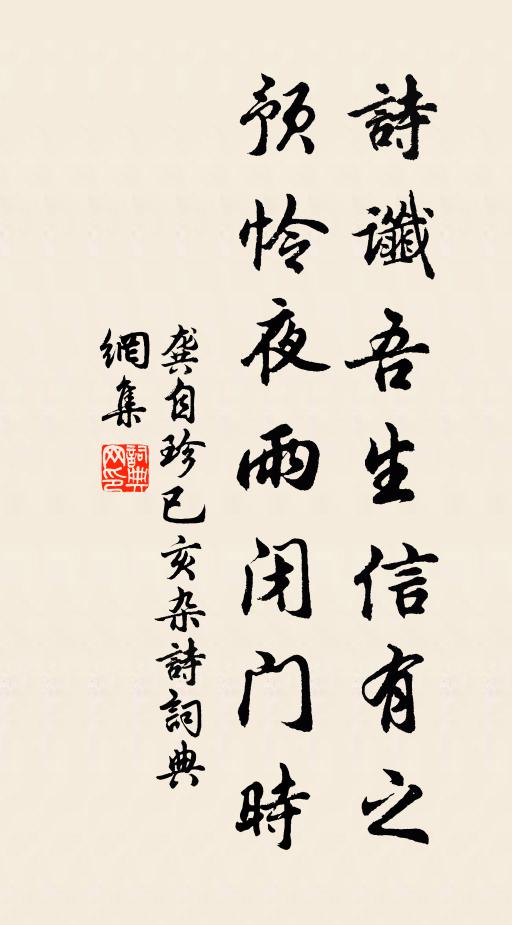 詩讖吾生信有之
預怜夜雨闭门時
龚自珍已亥杂詩詞典
網集
詞典网印